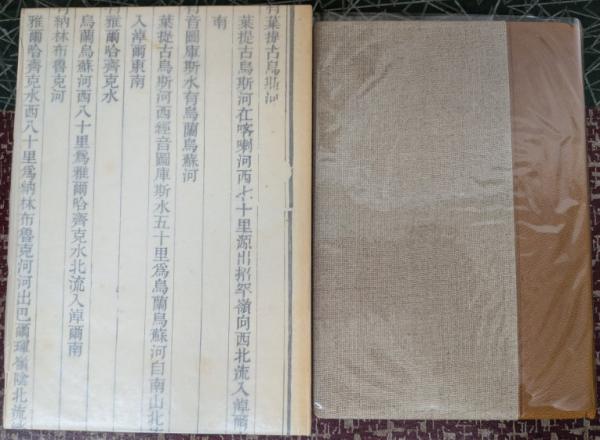 有葉提古烏斯河
葉提古烏斯河在喀喇河西七十里源出招罕嶺向西北流入淖爾
南
有音圖庫斯水有烏蘭烏蘇河
葉提古烏斯河西經音圖庫斯水五十里爲烏蘭烏蘇河自南山北
入淖爾東南
雅爾哈齊克水
烏蘭烏蘇河西八十里爲雅爾哈齊克水北流入淖爾南
有納林布魯克河
雅爾哈齊克水西八十里爲納林布魯克河河出巴爾琿嶺陰北流